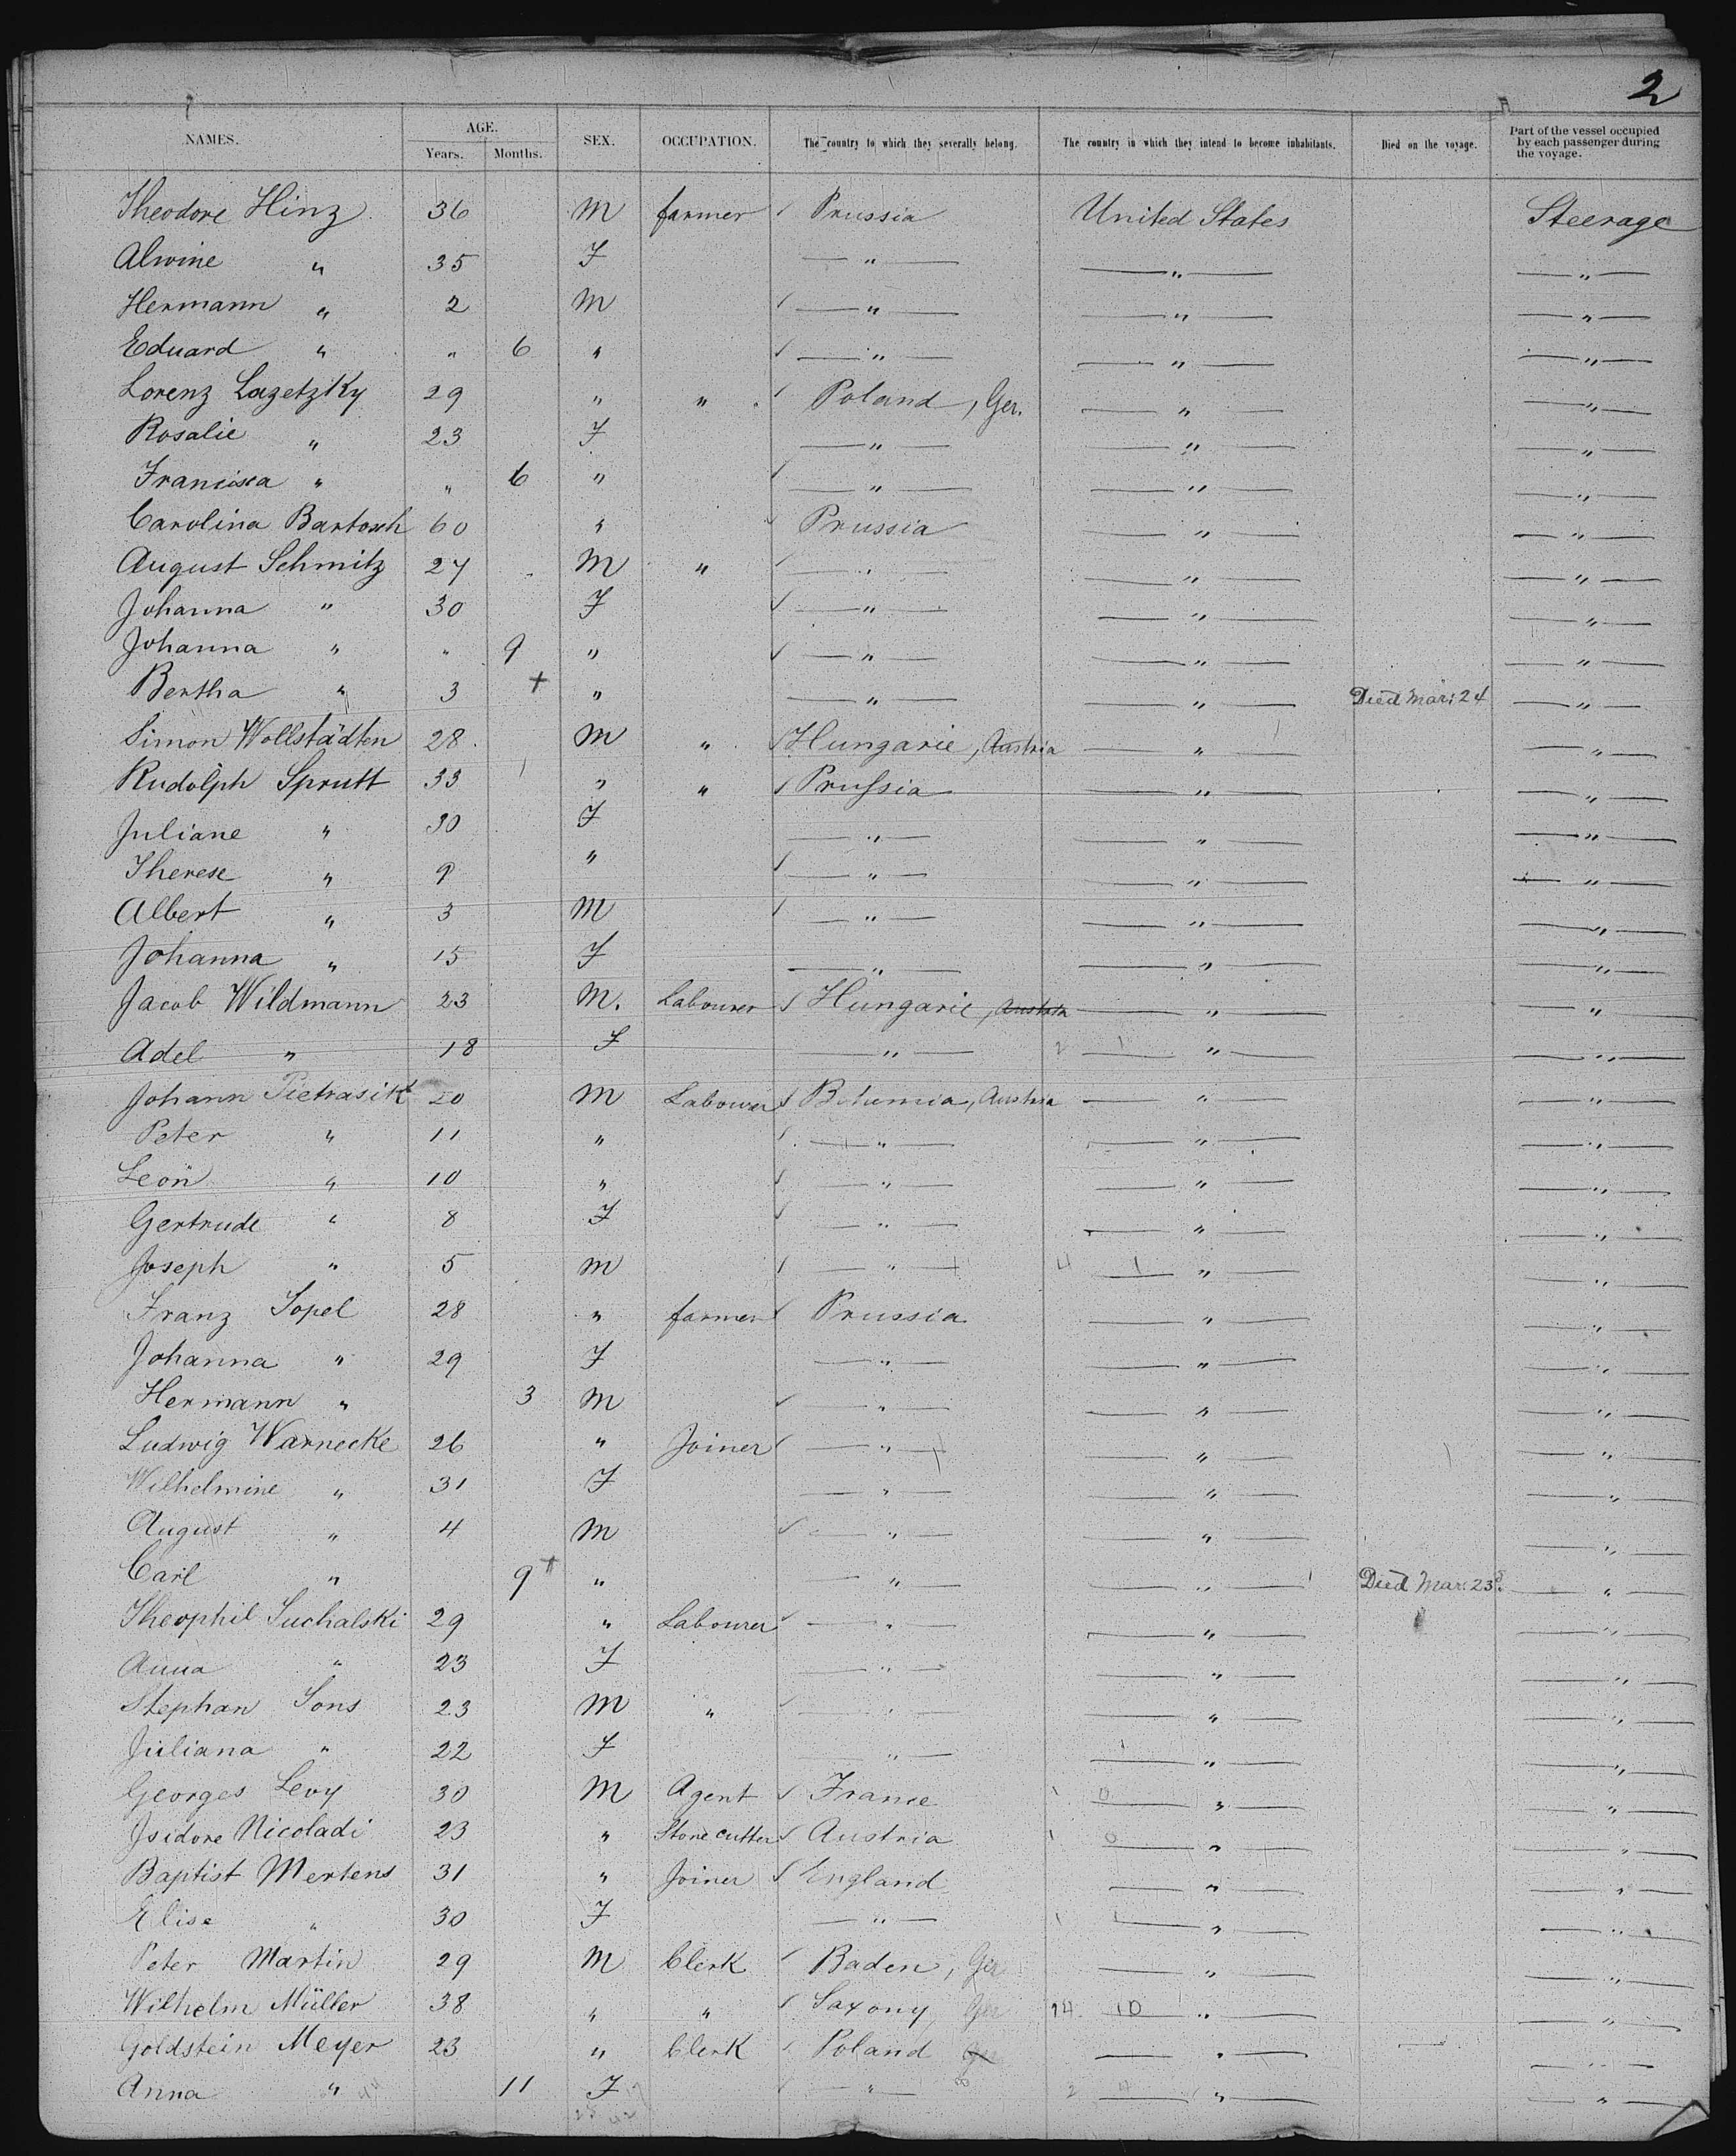 2
NAMES. AGE. Years. Months. SEX. OCCUPATION. The country to which they severally belong. The country in which they intend to become inhabitants. Died on the voyage. Part of the vessel occupied by each passenger during the voyage.
Theodore Hinz 36 M farmer Prussia United States Steerage
Alwine " 35 F " " "
Hermann " 2 M " " "
Eduard " " 6 " " " "
Lorenz Lazetzky 29 " " Poland, Ger. " "
Rosalie " 23 F " " "
Francisca " " 6 " " " "
Carolina Bartosch 60 " Prussia " "
August Schmitz 27 M " " " "
Johanna " 30 F " " "
Johanna " " 9 " " " "
Bertha " 3 + " " " Died Mar: 24 "
Simon Wollstädten 28 M " Hungarie, Austria " "
Rudolph Sprutt 33 " " Prussia " "
Juliane " 30 F " " "
Therese " 9 " " " "
Albert " 3 M " " "
Johanna " 15 F " " "
Jacob Wildmann 23 M. Labourer Hungarie, Austria " "
Adel " 18 F " 2 1 " "
Johann Pietrasik 20 M Labourer Bohemia, Austria " "
Peter " 11 " " " "
Leon " 10 " " " "
Gertrude " 8 F " " "
Joseph " 5 M " 4 1 " "
Franz Sopel 28 " farmer Prussia " "
Johanna " 29 F " " "
Hermann " 3 M " " "
Ludwig Warnecke 26 " Joiner " " "
Wilhelmine " 31 F " " "
August " 4 M " " "
Carl " 9 + " " " Died Mar. 23 "
Theophil Suchalski 29 " Labourer " " "
Anna " 23 F " " "
Stephan Sons 23 M " " " "
Juliana " 22 F " " "
Georges Levy 30 M Agent France 1 0 " "
Isidore Nicoladi 23 " Stone cutter Austria 1 0 " "
Baptist Mertens 31 " Joiner England " "
Elise " 30 F " 1 1 " "
Peter Martin 29 M Clerk Baden, Ger " "
Wilhelm Müller 38 " " Saxony, Ger 24 10 " "
Goldstein Meyer 23 " Clerk Poland " "
Anna " 44 11 F " 2 4 " "